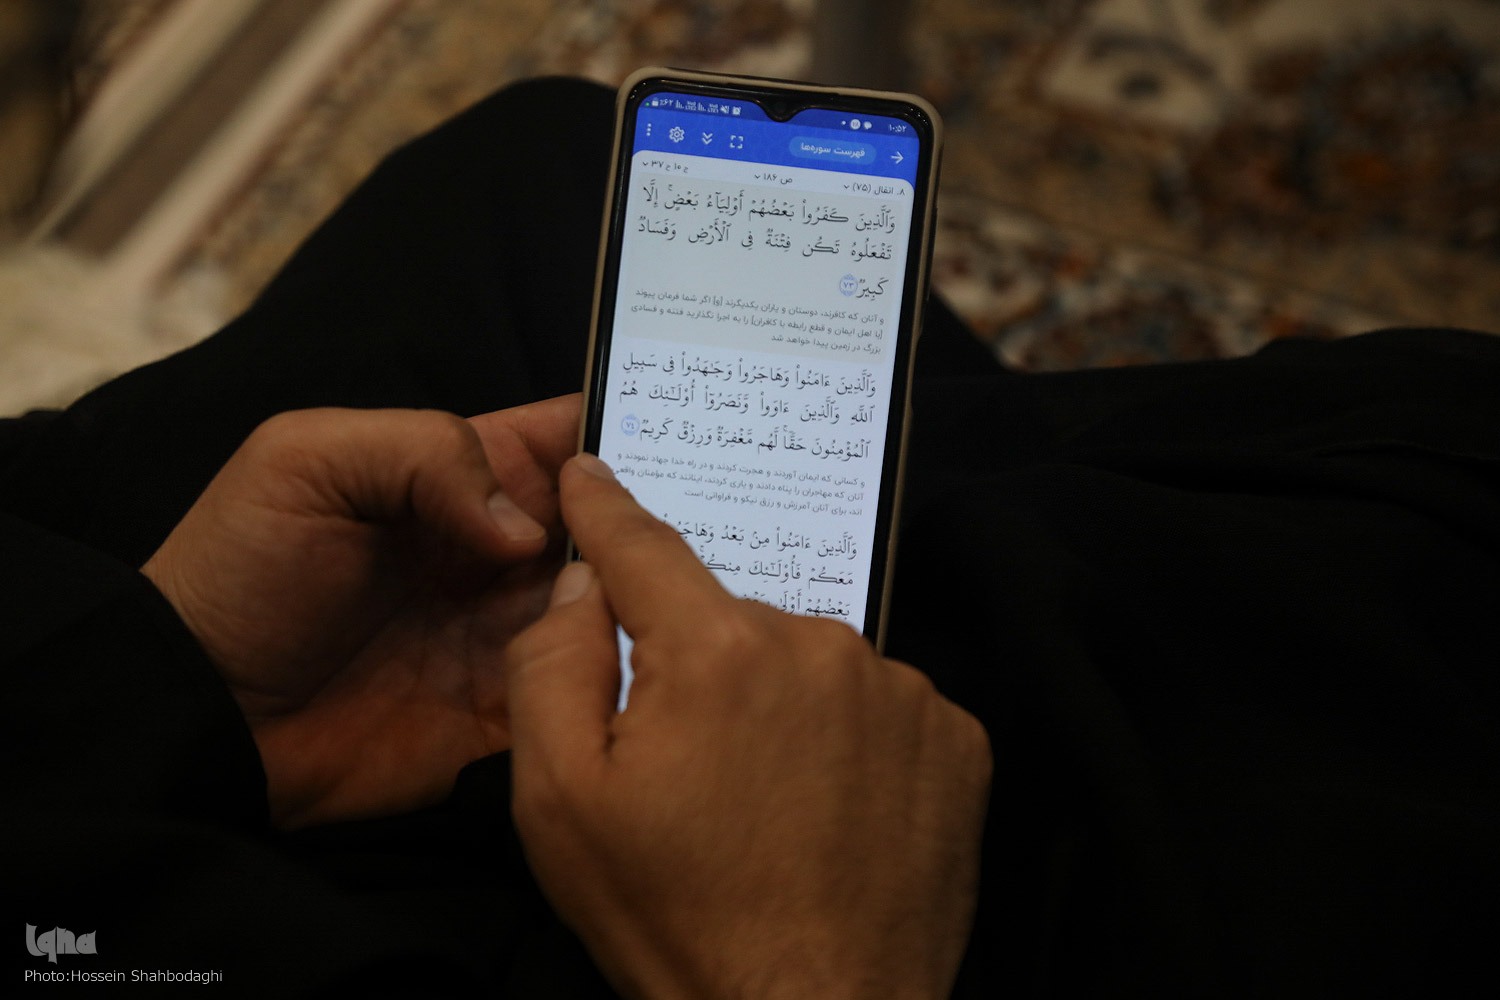 ۱۰:۵۲
٪۶۲
فهرست سوره‌ها
۸. انفال (۷۵)
ص ۱۸۶
ج ۱۰ ح ۳۷
وَٱلَّذِينَ كَفَرُواْ بَعۡضُهُمۡ أَوۡلِيَآءُ بَعۡضٍۚ إِلَّا
تَفۡعَلُوهُ تَكُن فِتۡنَةٞ فِي ٱلۡأَرۡضِ وَفَسَادٞ
كَبِيرٞ ٧٣
و آنان که کافرند، دوستان و یاران یکدیگرند [و] اگر شما فرمان پیوند
[با اهل ایمان و قطع رابطه با کافران] را به اجرا نگذارید فتنه و فسادی
بزرگ در زمین پیدا خواهد شد
وَٱلَّذِينَ ءَامَنُواْ وَهَاجَرُواْ وَجَٰهَدُواْ فِي سَبِيلِ
ٱللَّهِ وَٱلَّذِينَ ءَاوَواْ وَّنَصَرُوٓاْ أُوْلَٰٓئِكَ هُمُ
ٱلۡمُؤۡمِنُونَ حَقّٗاۚ لَّهُم مَّغۡفِرَةٞ وَرِزۡقٞ كَرِيمٞ ٧٤
و کسانی که ایمان آوردند و هجرت کردند و در راه خدا جهاد نمودند و
آنان که مهاجران را پناه دادند و یاری کردند، اینانند که مؤمنان واقعی
اند، برای آنان آمرزش و رزق نیکو و فراوانی است
وَٱلَّذِينَ ءَامَنُواْ مِنۢ بَعۡدُ
مَعَكُمۡ فَأُوْلَٰٓئِكَ مِنكُمۡۚ
بَعۡضُهُمۡ أَوۡلَىٰ
Iqna
Photo:Hossein Shahbodaghi